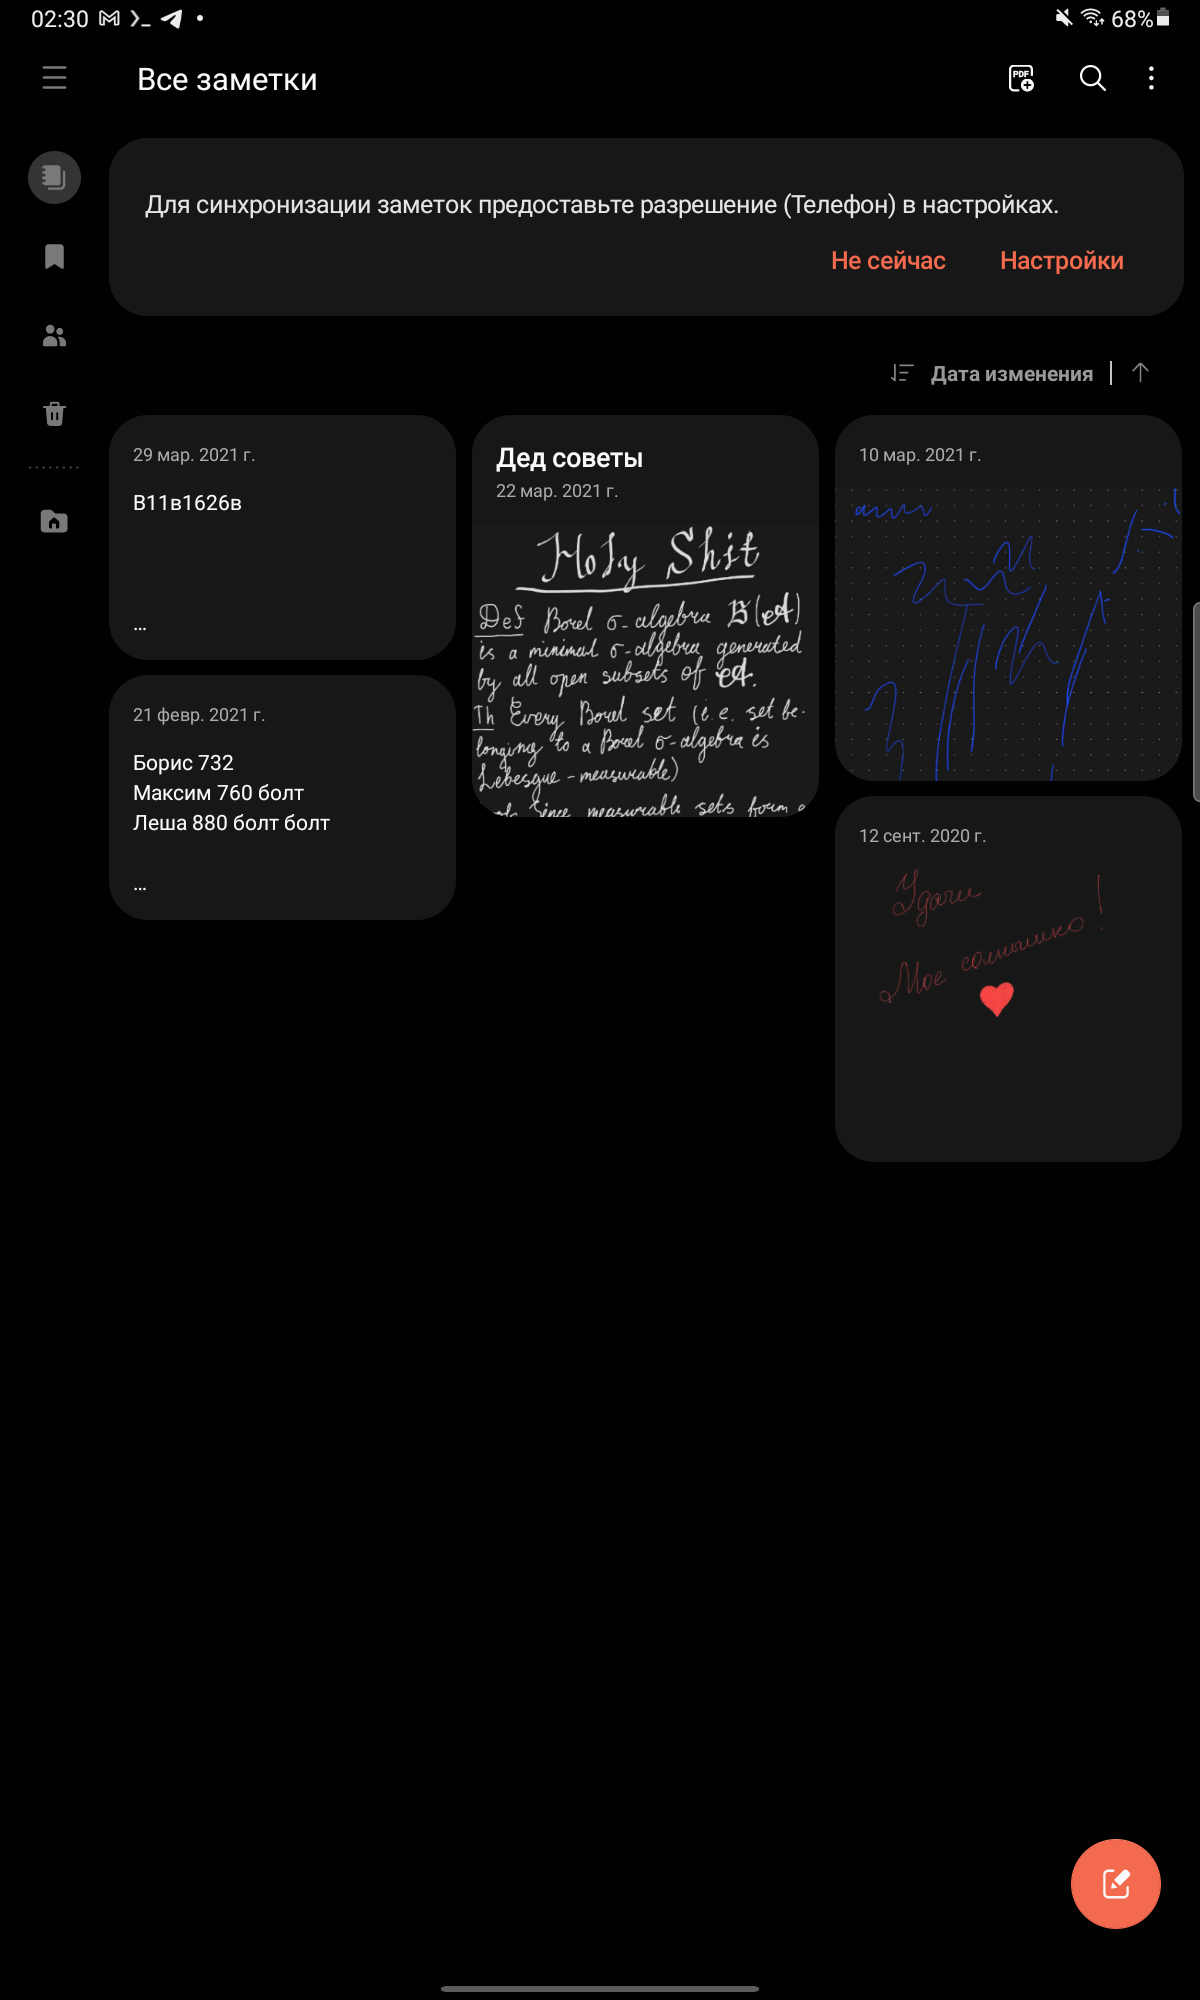 02:30
68%
Все заметки
PDF
Для синхронизации заметок предоставьте разрешение (Телефон) в настройках.
Не сейчас Настройки
Дата изменения
29 мар. 2021 г.
В11в1626в
...
21 февр. 2021 г.
Борис 732
Максим 760 болт
Леша 880 болт болт
...
Дед советы
22 мар. 2021 г.
Holy Shit
Def Borel σ-algebra B(A)
is a minimal σ-algebra generated
by all open subsets of A.
Th Every Borel set (i.e. set be-
longing to a Borel σ-algebra is
Lebesgue-measurable)
Since measurable sets form a
10 мар. 2021 г.
12 сент. 2020 г.
Удачи
Мое солнышко!